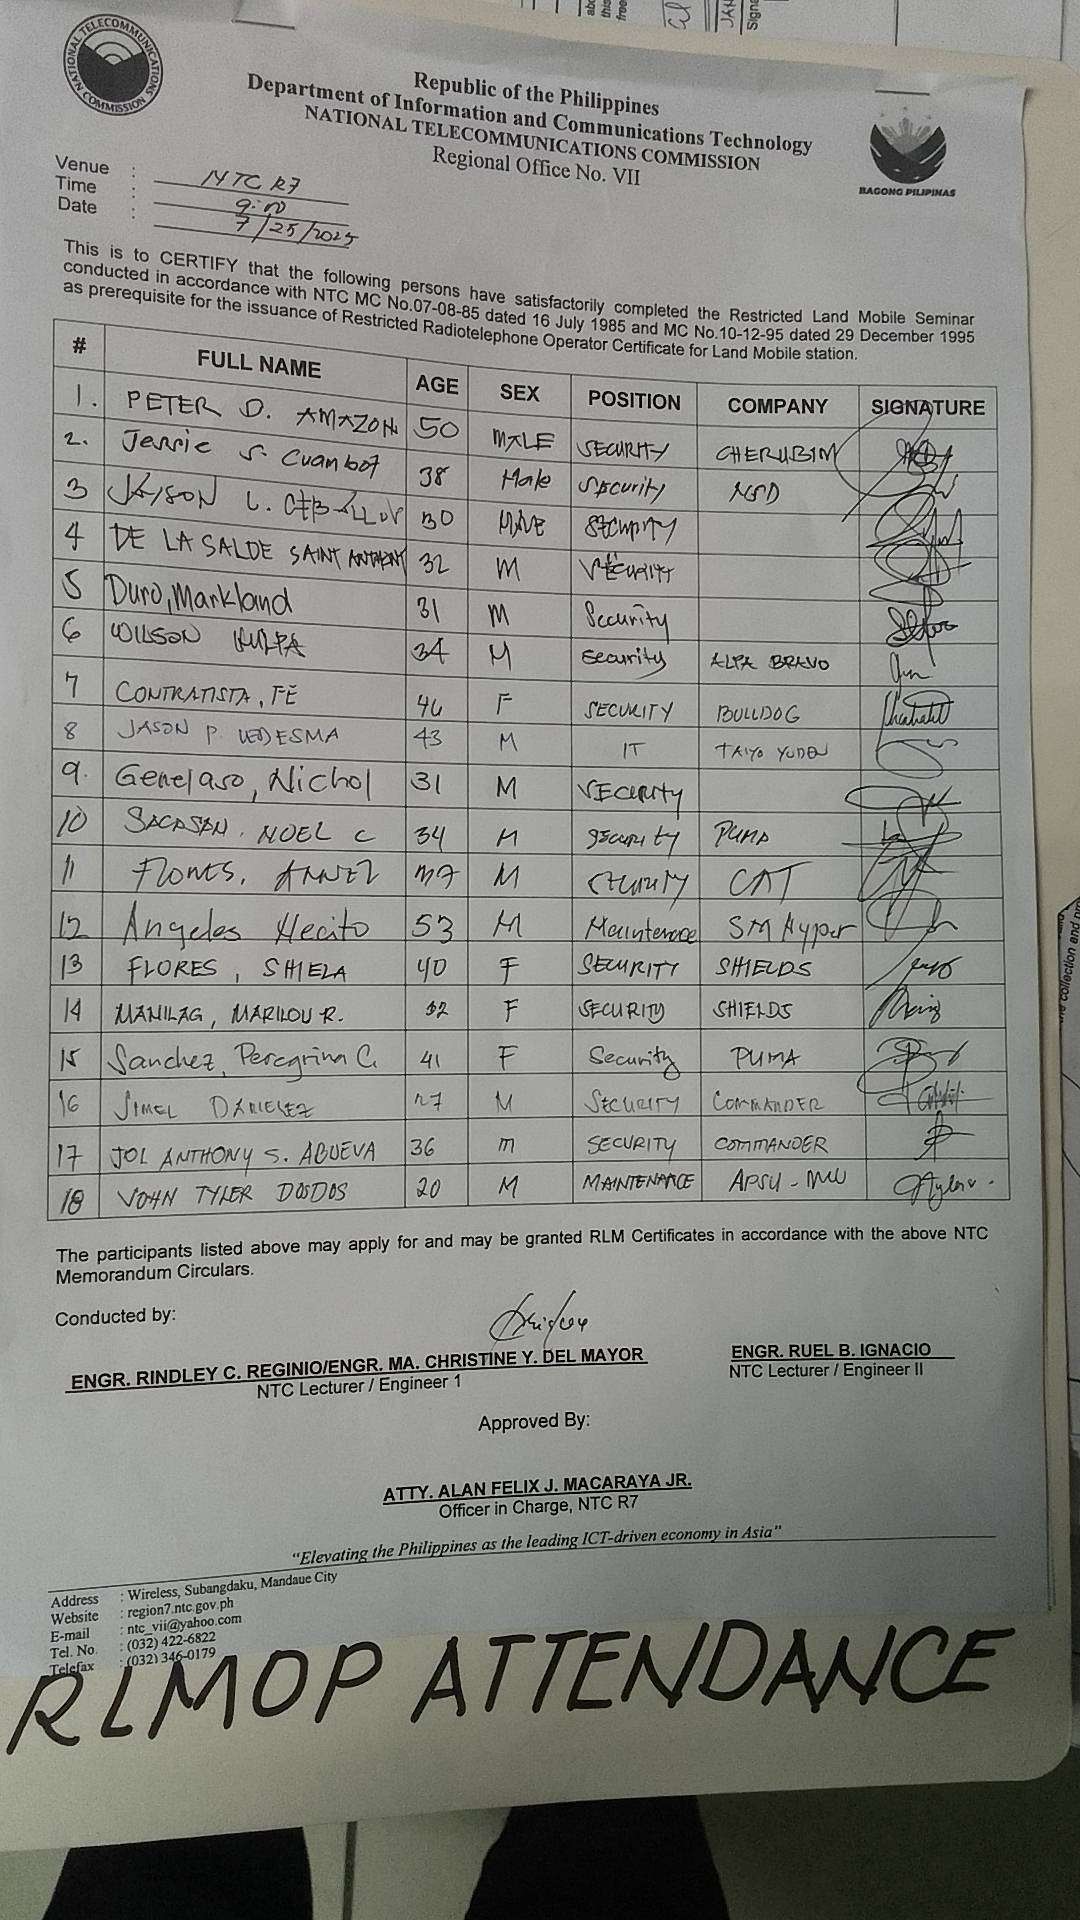 NATIONAL TELECOMMUNICATIONS COMMISSION
Republic of the Philippines
Department of Information and Communications Technology
NATIONAL TELECOMMUNICATIONS COMMISSION
Regional Office No. VII
BAGONG PILIPINAS
Venue : NTC R7
Time : 9:00
Date : 7/25/2025
This is to CERTIFY that the following persons have satisfactorily completed the Restricted Land Mobile Seminar
conducted in accordance with NTC MC No.07-08-85 dated 16 July 1985 and MC No.10-12-95 dated 29 December 1995
as prerequisite for the issuance of Restricted Radiotelephone Operator Certificate for Land Mobile station.
# FULL NAME AGE SEX POSITION COMPANY SIGNATURE
1. PETER D. AMAZON 50 MALE SECURITY CHERUBIM
2. Jerrie S. Cuambot 38 Male Security NSD
3 JAYSON L. 30 MALE SECURITY
4 DE LA SALDE SAINT ANTHONY 32 M SECURITY
5 Duro, Markland 31 M Security
6 WILSON KULPA 34 M Security ALPA BRAVO
7 CONTRATISTA, FE 46 F SECURITY BULLDOG
8 JASON P. LEDESMA 43 M IT TAIYO YUDEN
9. Genelaso, Nichol 31 M SECURITY
10 SACASAN, NOEL C 34 M SECURITY PUMA
11 FLORES, ARNEL 37 M SECURITY CAT
12 Angeles Hecito 53 M Maintenance SM Hyper
13 FLORES, SHIELA 40 F SECURITY SHIELDS
14 MANILAG, MARILOU R. F SECURITY SHIELDS
15 Sanchez, Peregrina C. 41 F Security PUMA
16 SIMEL 27 M SECURITY COMMANDER
17 JOL ANTHONY S. ABUEVA 36 M SECURITY COMMANDER
18 JOHN TYLER DOSDOS 20 M MAINTENANCE APSU - MU
The participants listed above may apply for and may be granted RLM Certificates in accordance with the above NTC
Memorandum Circulars.
Conducted by:
ENGR. RINDLEY C. REGINIO/ENGR. MA. CHRISTINE Y. DEL MAYOR
NTC Lecturer / Engineer 1
ENGR. RUEL B. IGNACIO
NTC Lecturer / Engineer II
Approved By:
ATTY. ALAN FELIX J. MACARAYA JR.
Officer in Charge, NTC R7
"Elevating the Philippines as the leading ICT-driven economy in Asia"
Address : Wireless, Subangdaku, Mandaue City
Website : region7.ntc.gov.ph
E-mail : ntc_vii@yahoo.com
Tel. No. : (032) 422-6822
Telefax : (032) 346-0179
RLMOP ATTENDANCE